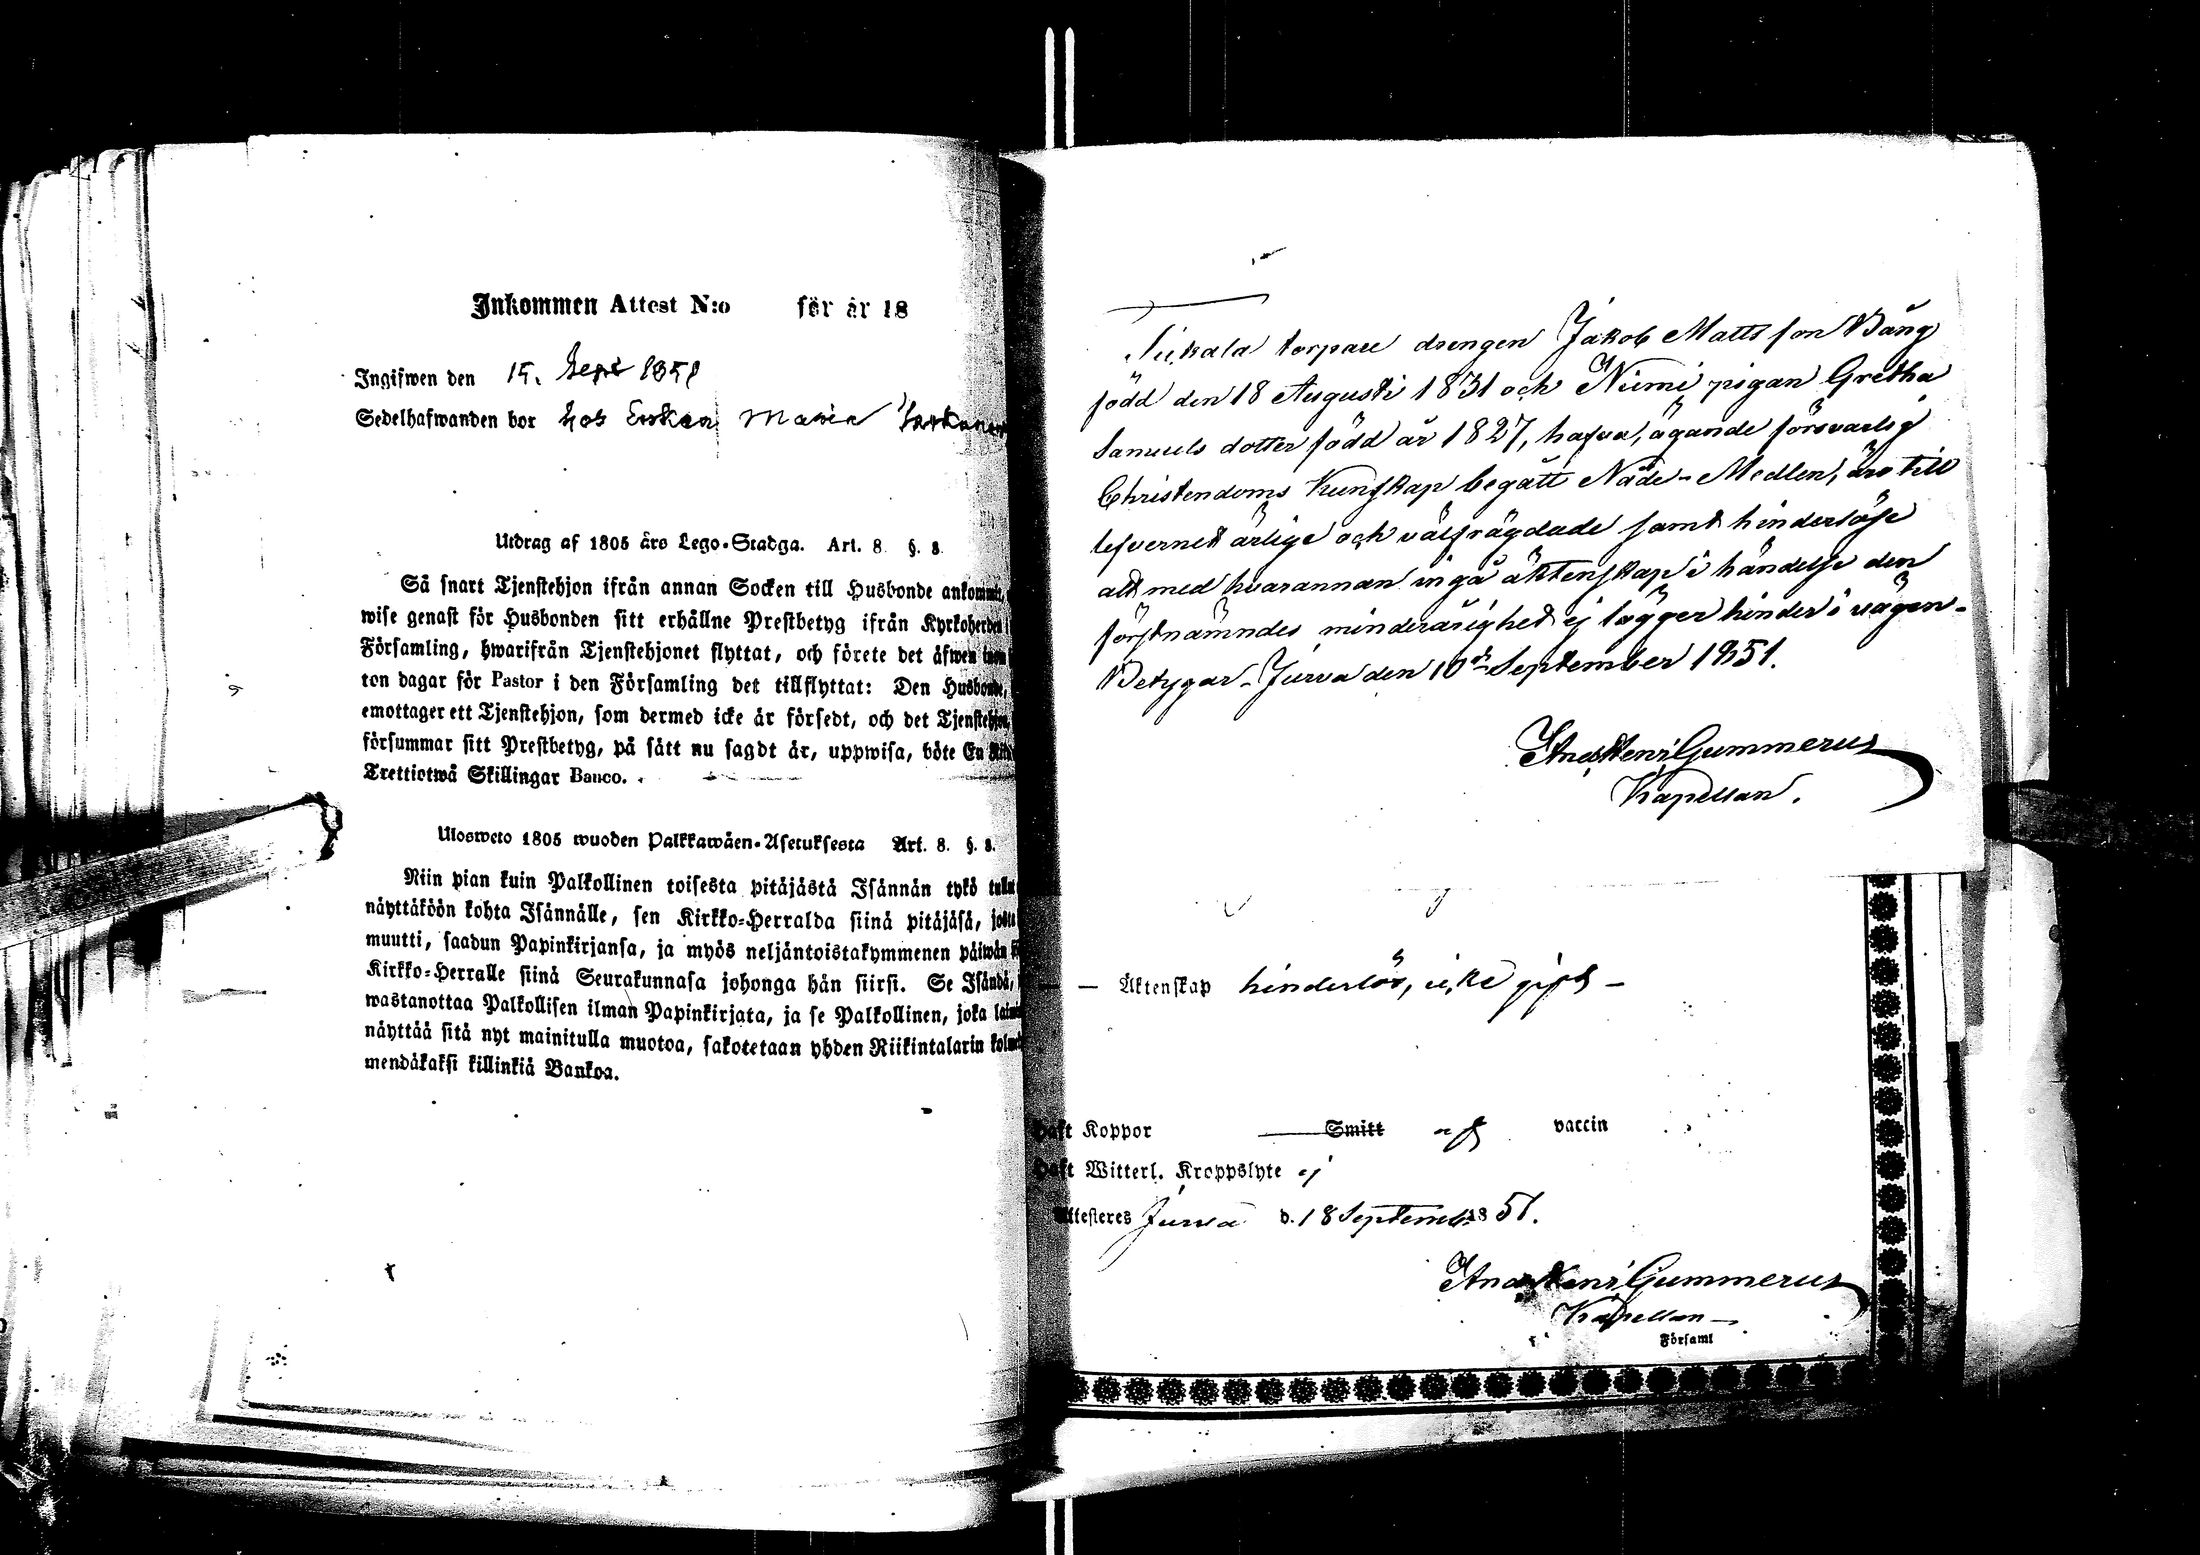 Inkommen Attest N:o för år 18
Ingifwen den 15. Sept 1851
Sedelhafwanden bor hos Maria
Utdrag af 1805 års Lego-Stadga. Art. 8. §. 8.
Så snart Tjenstehjon ifrån annan Socken till Husbonde ankommit,
wise genast för Husbonden sitt erhållne Prestbetyg ifrån Kyrkoherden i
Församling, hwarifrån Tjenstehjonet flyttat, och förete det äfwen inom
ton dagar för Pastor i den Församling det tillflyttat: Den Husbonde,
emottager ett Tjenstehjon, som dermed icke är försedt, och det Tjenstehjon,
försummar sitt Prestbetyg, på sätt nu sagdt är, uppwisa, böte En Rik
Trettiotwå Skillingar Banco.
Ulosweto 1805 wuoden Palkkawäen-Asetuksesta Art. 8. §. 8.
Niin pian kuin Palkollinen toisesta pitäjästä Isännän tykö tullu
näyttäköön kohta Isännälle, sen Kirkko-Herralda siinä pitäjäsä, josta
muutti, saadun Papinkirjansa, ja myös neljäntoistakymmenen päiwän si
Kirkko-Herralle siinä Seurakunnasa johonga hän siirsi. Se Isändä,
wastanottaa Palkollisen ilman Papinkirjata, ja se Palkollinen, joka laimi
näyttää sitä nyt mainitulla muotoa, sakotetaan yhden Riikintalarin kolme
mendäkaksi killinkiä Bankoa.
torpare drengen Jakob Matts son Bång
född den 18 Augusti 1831 och Niemi pigan Gretha
Samuels dotter född år 1827, hafva, ägande försvarlig
Christendoms Kunskap begått Nåde-Medlen, äro till
lefvernet ärlige och välfrägdade samt hinderlöse
att med hvarannan ingå äktenskap i händelse den
förstnämndes minderårighet ej lägger hinder i vägen-
Betygar- Jurva den 10de September 1851.
And Henr Gummerus
Kapellan.
- Äktenskap hinderlös, icke gift -
Haft Koppor Smitt vaccin
Haft Witterl. Kroppslyte ej
Attesteres Jurva d. 18 Septemb. 1851.
And Henr Gummerus
Kapellan
Församl